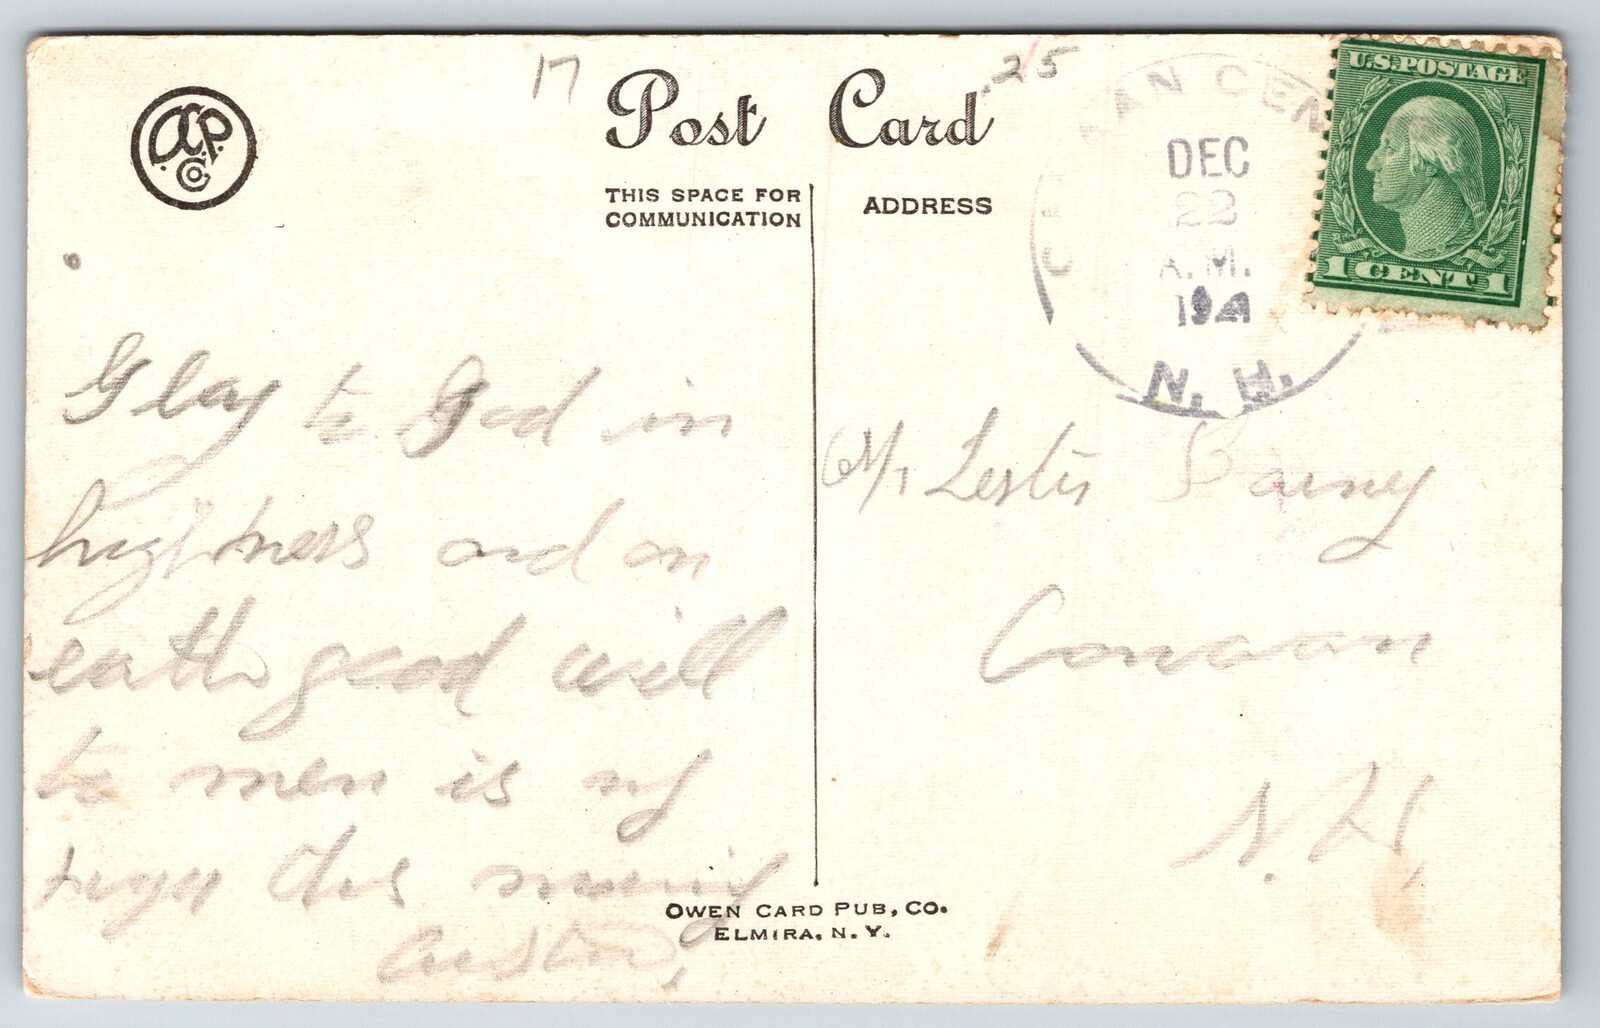 17
Post Card
.25
O.C.P. Co.
THIS SPACE FOR
COMMUNICATION
ADDRESS
CANAAN CEN
DEC
22
A.M.
192
N. H.
U.S. POSTAGE
1 CENT 1
Glory to God in
highness and on
earth good will
to men is my
this
Austin,
Mr Lester Barney
Canaan
N.H.
OWEN CARD PUB, CO.
ELMIRA, N. Y.